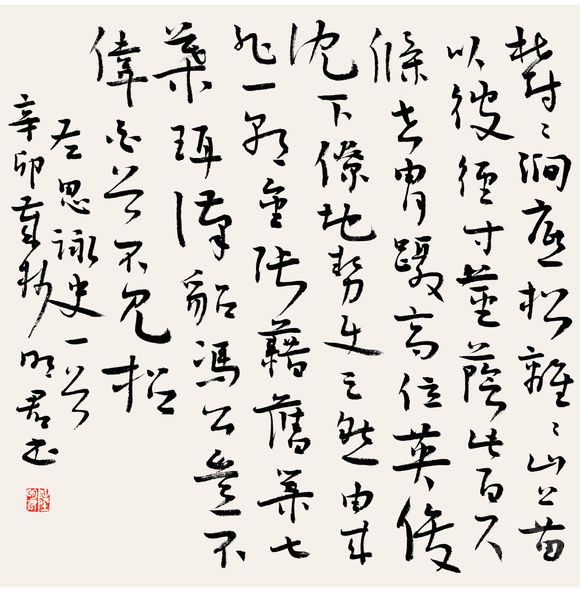 鬱〻澗底松離〻山上苗
以彼徑寸莖蔭此百尺
條世冑躡高位英俊
沈下僚地勢使之然由來
非一朝金張藉舊業七
葉珥漢貂馮公豈不
偉白首不見招
左思詠史一首
辛卯明君書